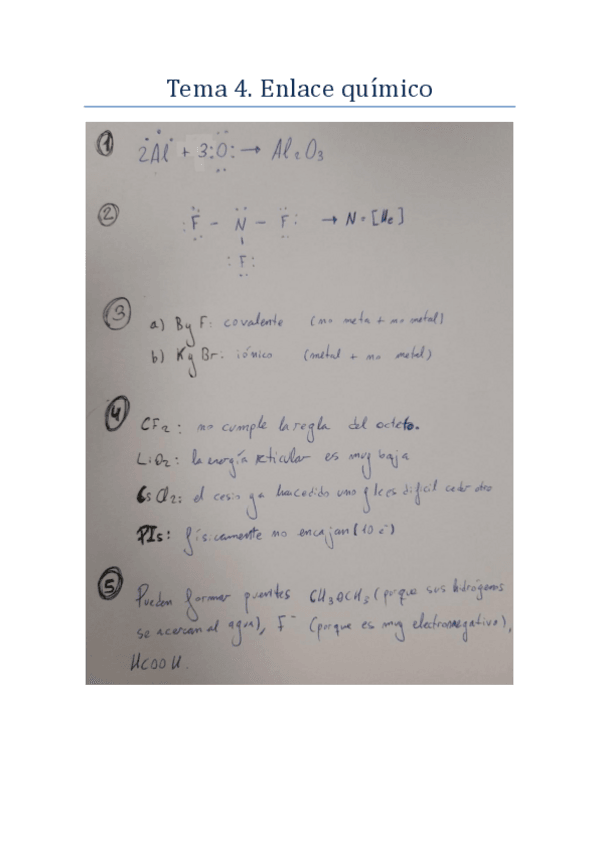 Tema 4. Enlace químico
1 2Al + 3:O: → Al2O3
2 :F - N - F: → N = [He]
:F:
3 a) B y F: covalente (no metal + no metal)
b) K y Br: iónico (metal + no metal)
4 CF2: no cumple la regla del octeto.
LiO2: la energía reticular es muy baja
CsCl2: el cesio ya ha cedido uno y le es difícil ceder otro
PI5: físicamente no encajan (10 e-)
5 Pueden formar puentes CH3OCH3 (porque sus hidrógenos
se acercan al agua), F- (porque es muy electronegativo),
HCOOH.